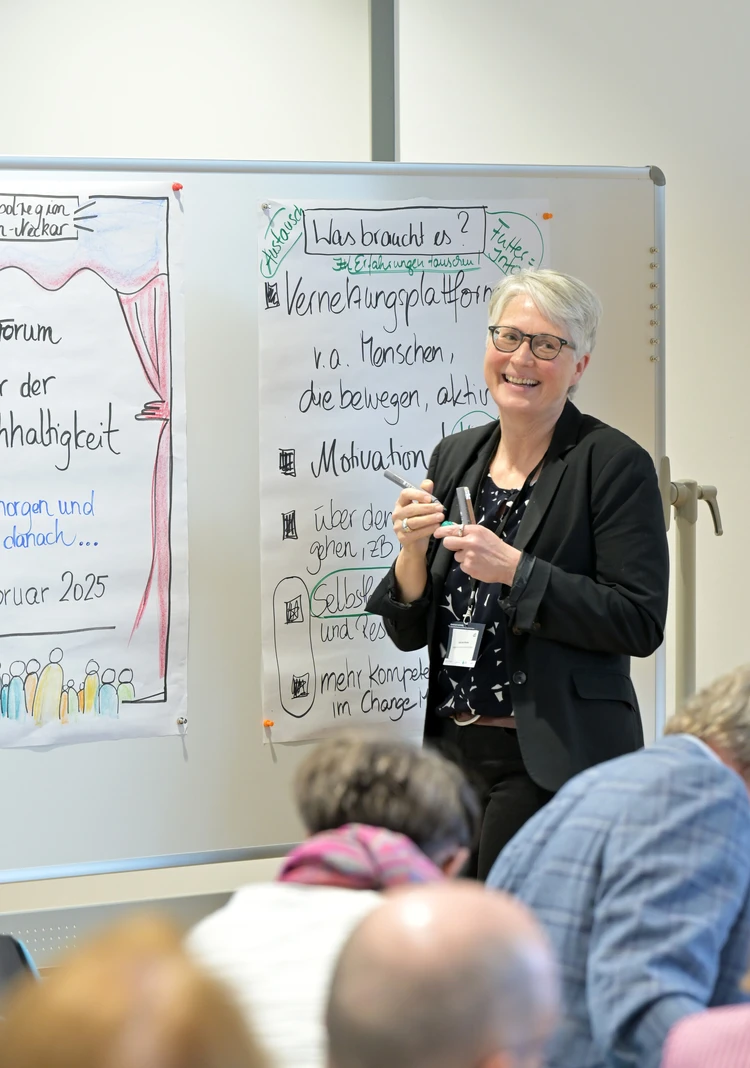 n-Neckar
Forum
r der
hhaltigkeit
morgen und
danach...
ruar 2025
Austausch
Was braucht es?
Futter =
Info
Erfahrungen tauschen!
Vernetzungsplattform
v.a. Menschen,
die bewegen, aktiv
Motivation
über den
gehen, ZB
Selbst
und Res
mehr Kompete
im Change M